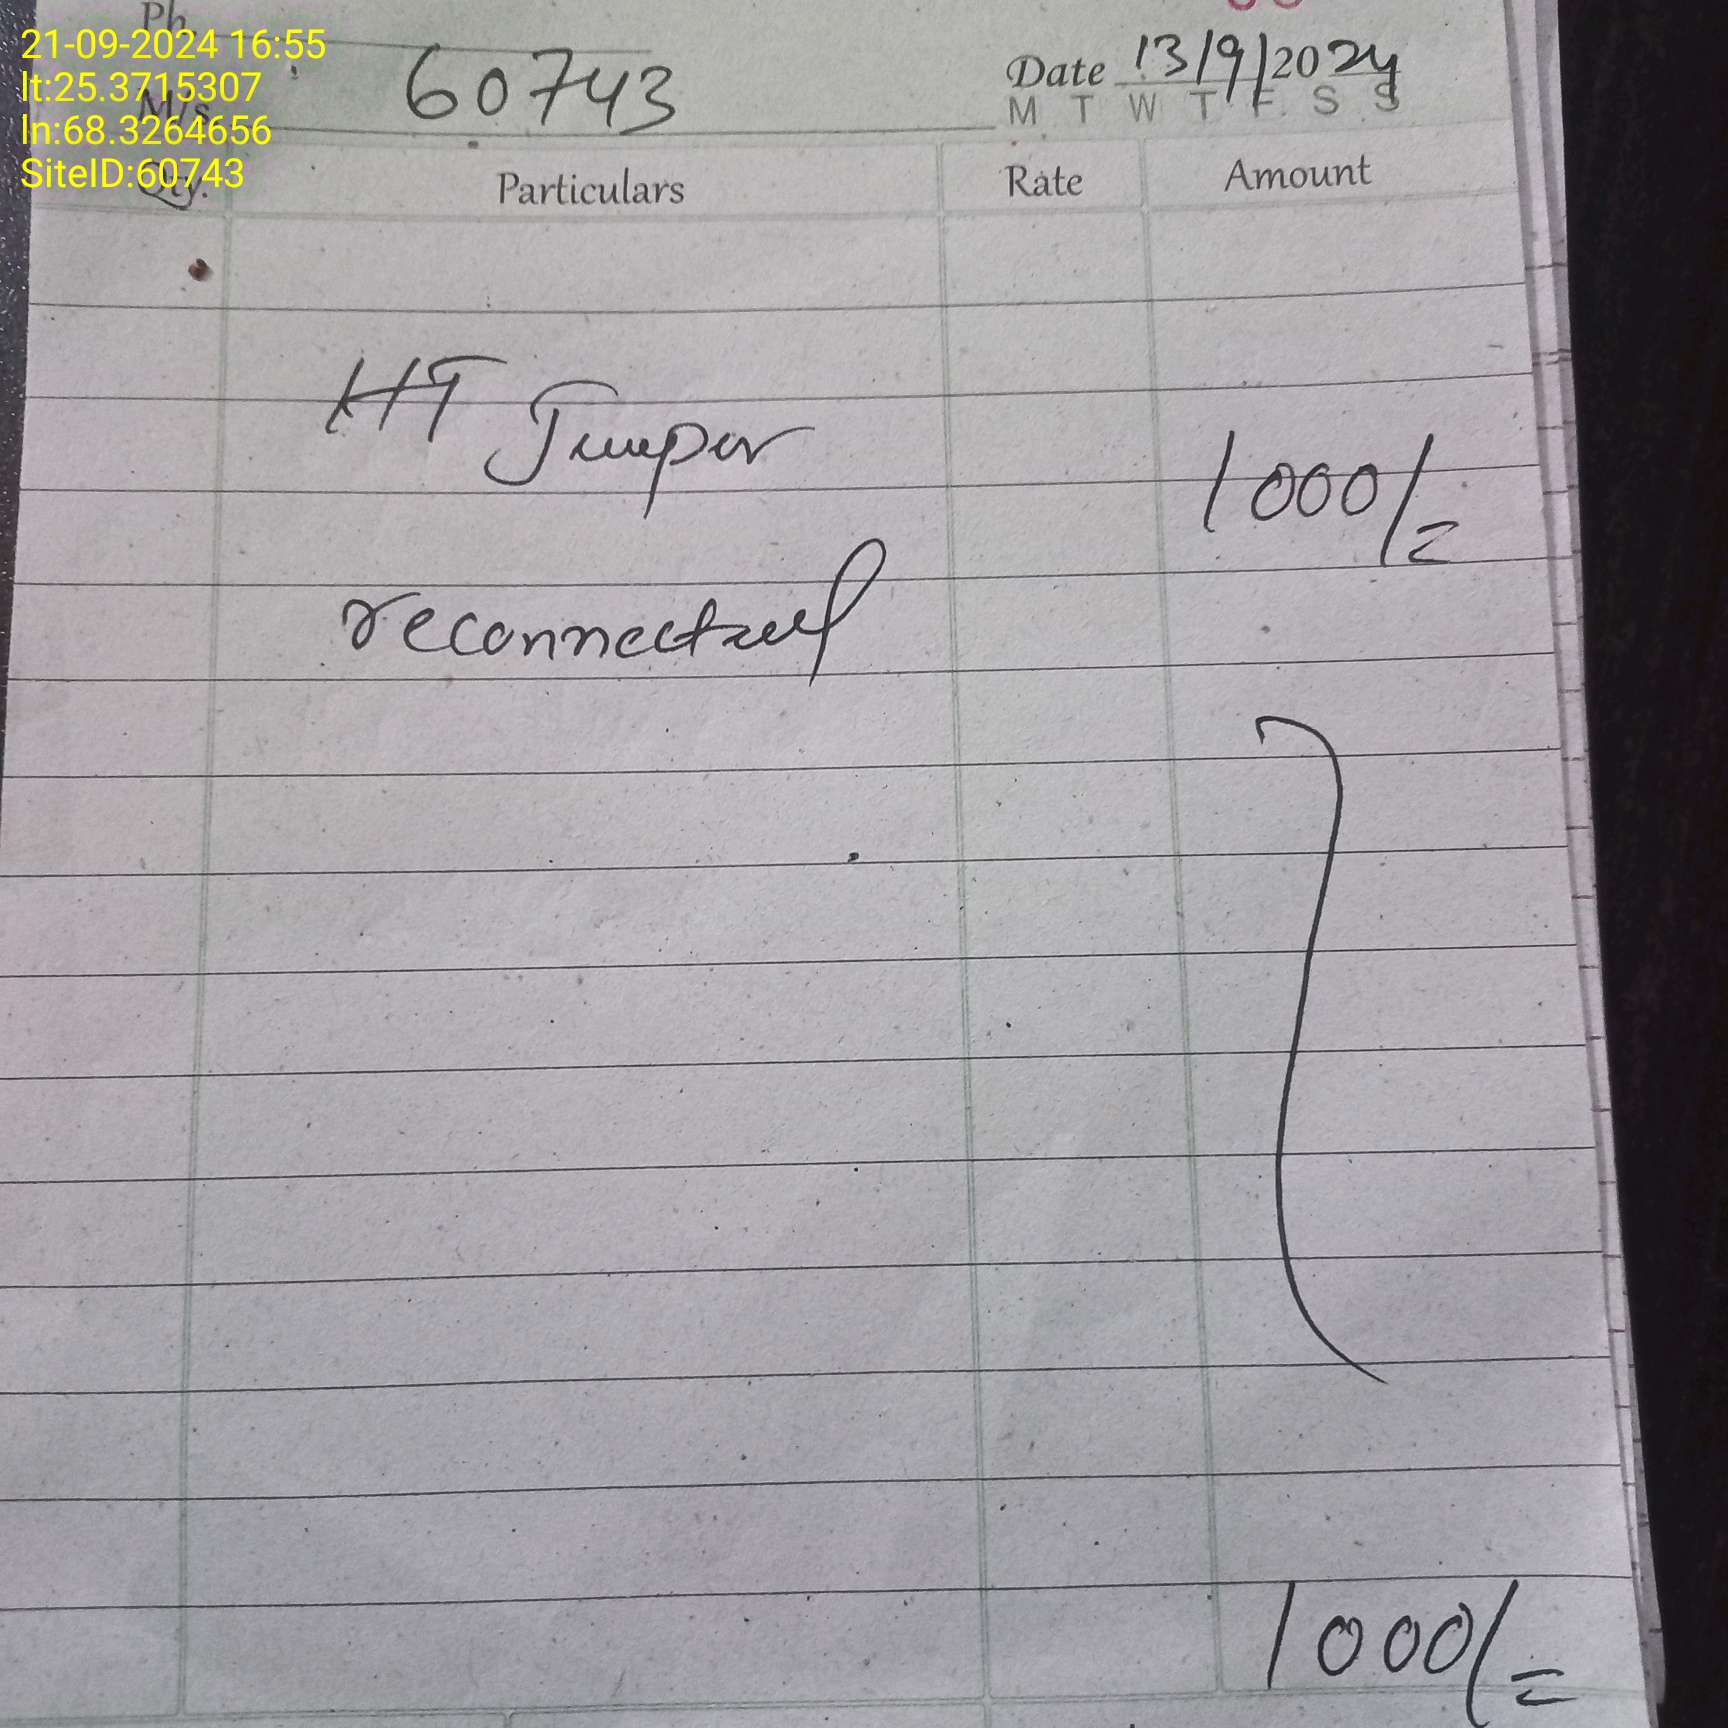 Ph.
21-09-2024 16:55
lt:25.3715307
ln:68.3264656
SiteID:60743
M/s. 60743
Date 13/9/2024
M T W T F S S
Qty. Particulars Rate Amount
HT Jumper
1000/=
reconnected
1000/=